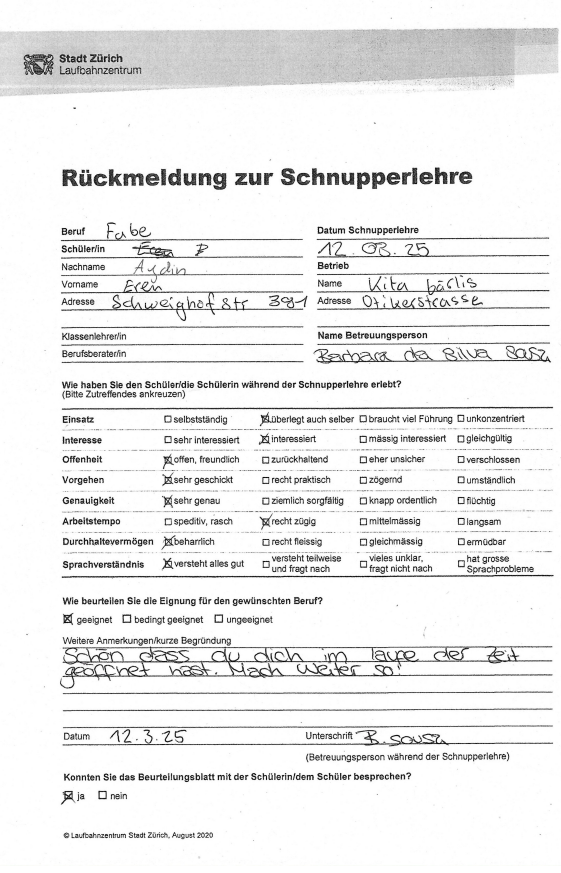 Stadt Zürich
Laufbahnzentrum
Rückmeldung zur Schnupperlehre
Beruf Fabe
Schüler/in
Nachname Aydin
Vorname Eren
Adresse Schweighof Str 391
Klassenlehrer/in
Berufsberater/in
Datum Schnupperlehre
12. 03. 25
Betrieb
Name Kita bärlis
Adresse Otikerstrasse
Name Betreuungsperson
Barbara da Silva
Wie haben Sie den Schüler/die Schülerin während der Schnupperlehre erlebt?
(Bitte Zutreffendes ankreuzen)
Einsatz ☐ selbstständig ☒ überlegt auch selber ☐ braucht viel Führung ☐ unkonzentriert
Interesse ☐ sehr interessiert ☒ interessiert ☐ mässig interessiert ☐ gleichgültig
Offenheit ☒ offen, freundlich ☐ zurückhaltend ☐ eher unsicher ☐ verschlossen
Vorgehen ☒ sehr geschickt ☐ recht praktisch ☐ zögernd ☐ umständlich
Genauigkeit ☒ sehr genau ☐ ziemlich sorgfältig ☐ knapp ordentlich ☐ flüchtig
Arbeitstempo ☐ speditiv, rasch ☒ recht zügig ☐ mittelmässig ☐ langsam
Durchhaltevermögen ☒ beharrlich ☐ recht fleissig ☐ gleichmässig ☐ ermüdbar
Sprachverständnis ☒ versteht alles gut ☐ versteht teilweise und fragt nach ☐ vieles unklar, fragt nicht nach ☐ hat grosse Sprachprobleme
Wie beurteilen Sie die Eignung für den gewünschten Beruf?
☒ geeignet ☐ bedingt geeignet ☐ ungeeignet
Weitere Anmerkungen/kurze Begründung
Schön dass du dich im laufe der Zeit
geöffnet hast. Mach weiter so!
Datum 12.3.25
Unterschrift B. Sousa
(Betreuungsperson während der Schnupperlehre)
Konnten Sie das Beurteilungsblatt mit der Schülerin/dem Schüler besprechen?
☒ ja ☐ nein
© Laufbahnzentrum Stadt Zürich, August 2020